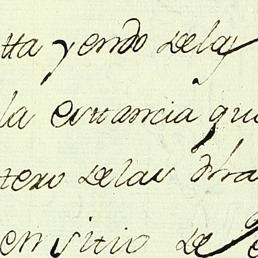 tta yendo de las
la estancia qu
tero de las obra
en sitio de